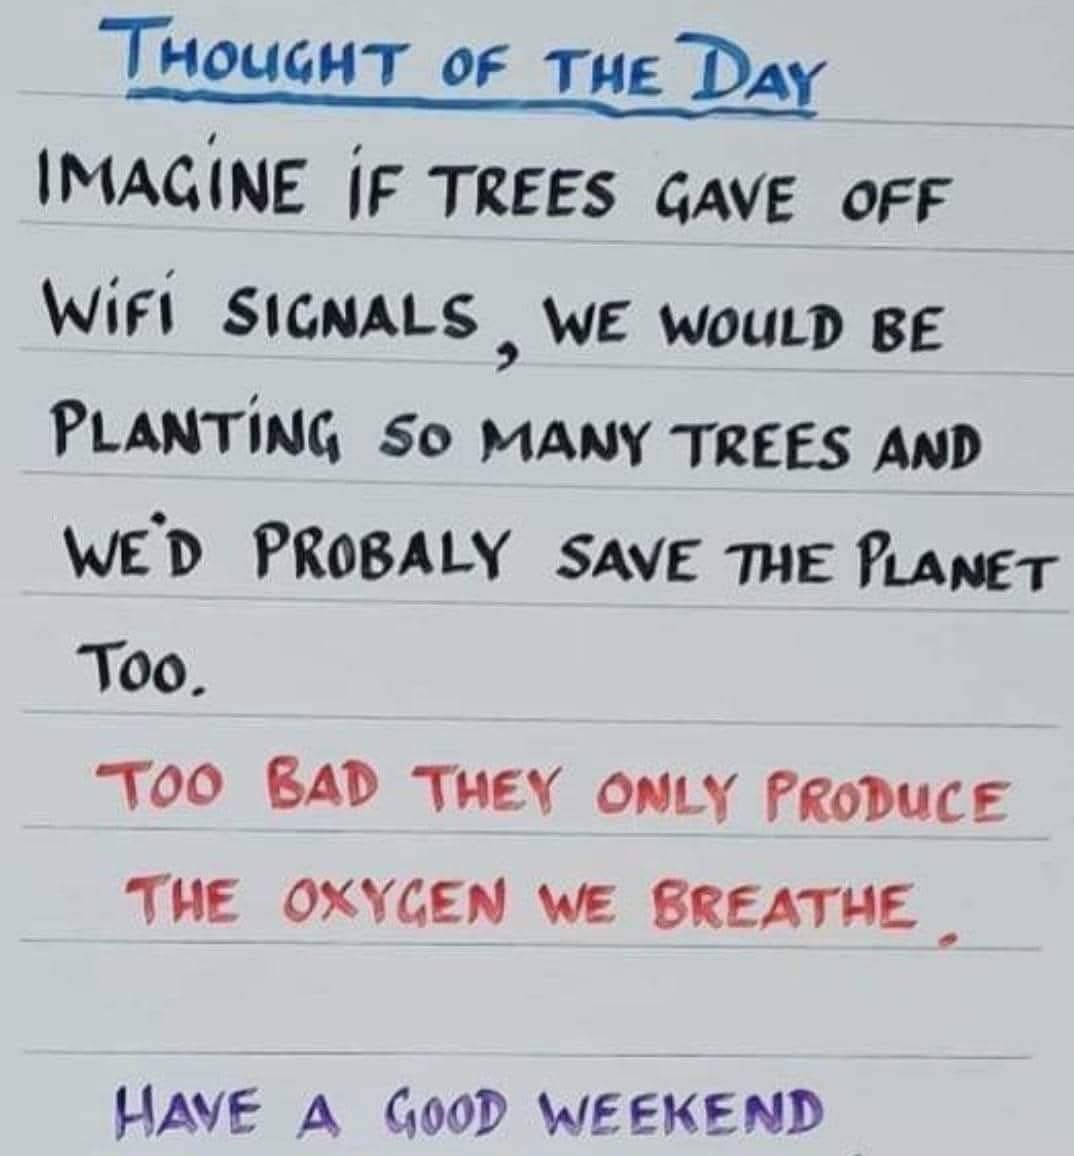 THOUGHT OF THE DAY
IMAGINE IF TREES GAVE OFF
WIFI SIGNALS, WE WOULD BE
PLANTING SO MANY TREES AND
WE'D PROBALY SAVE THE PLANET
TOO.
TOO BAD THEY ONLY PRODUCE
THE OXYGEN WE BREATHE.
HAVE A GOOD WEEKEND